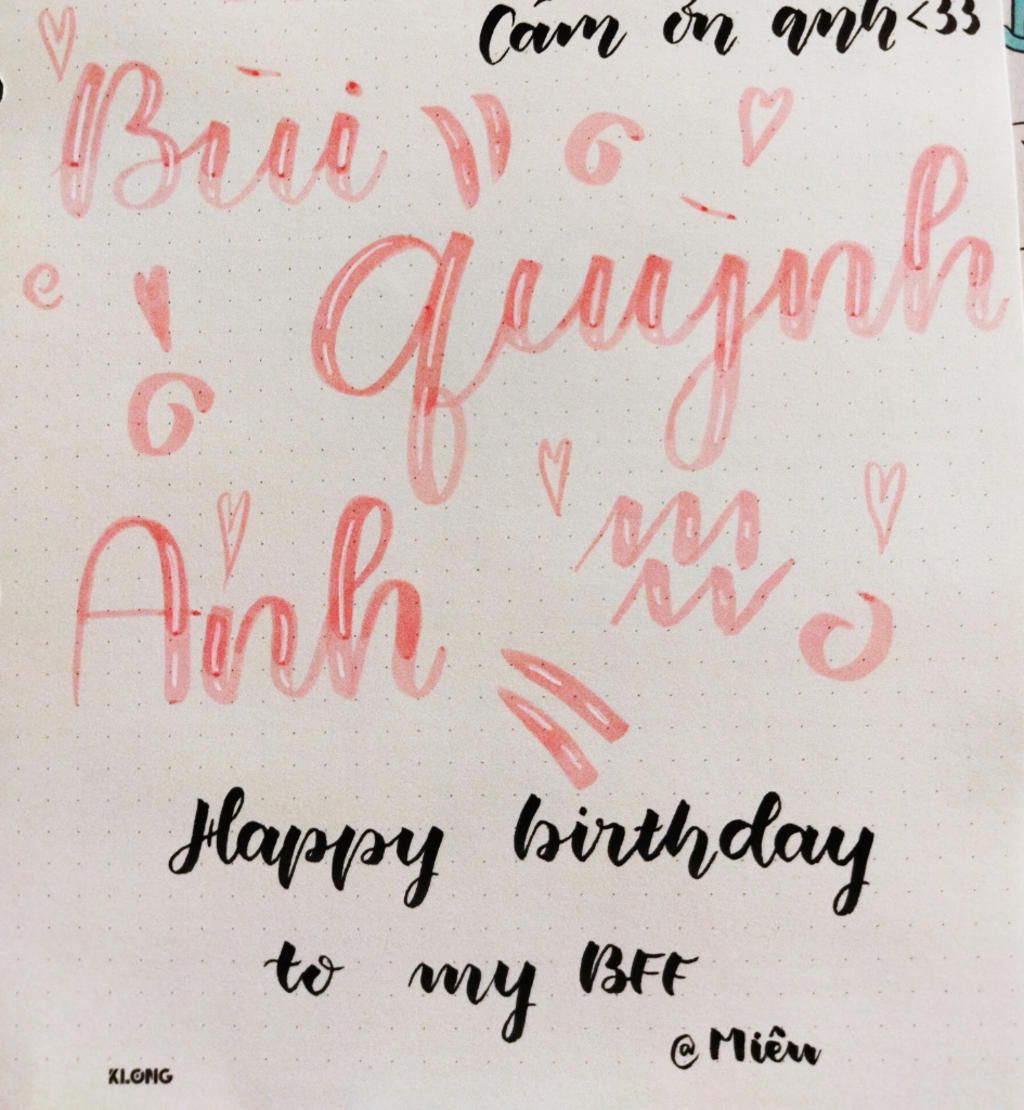 Cảm ơn anh<33
Bùi
quỳnh
Anh
Happy birthday
to my BFF
@Miêu
KLONG